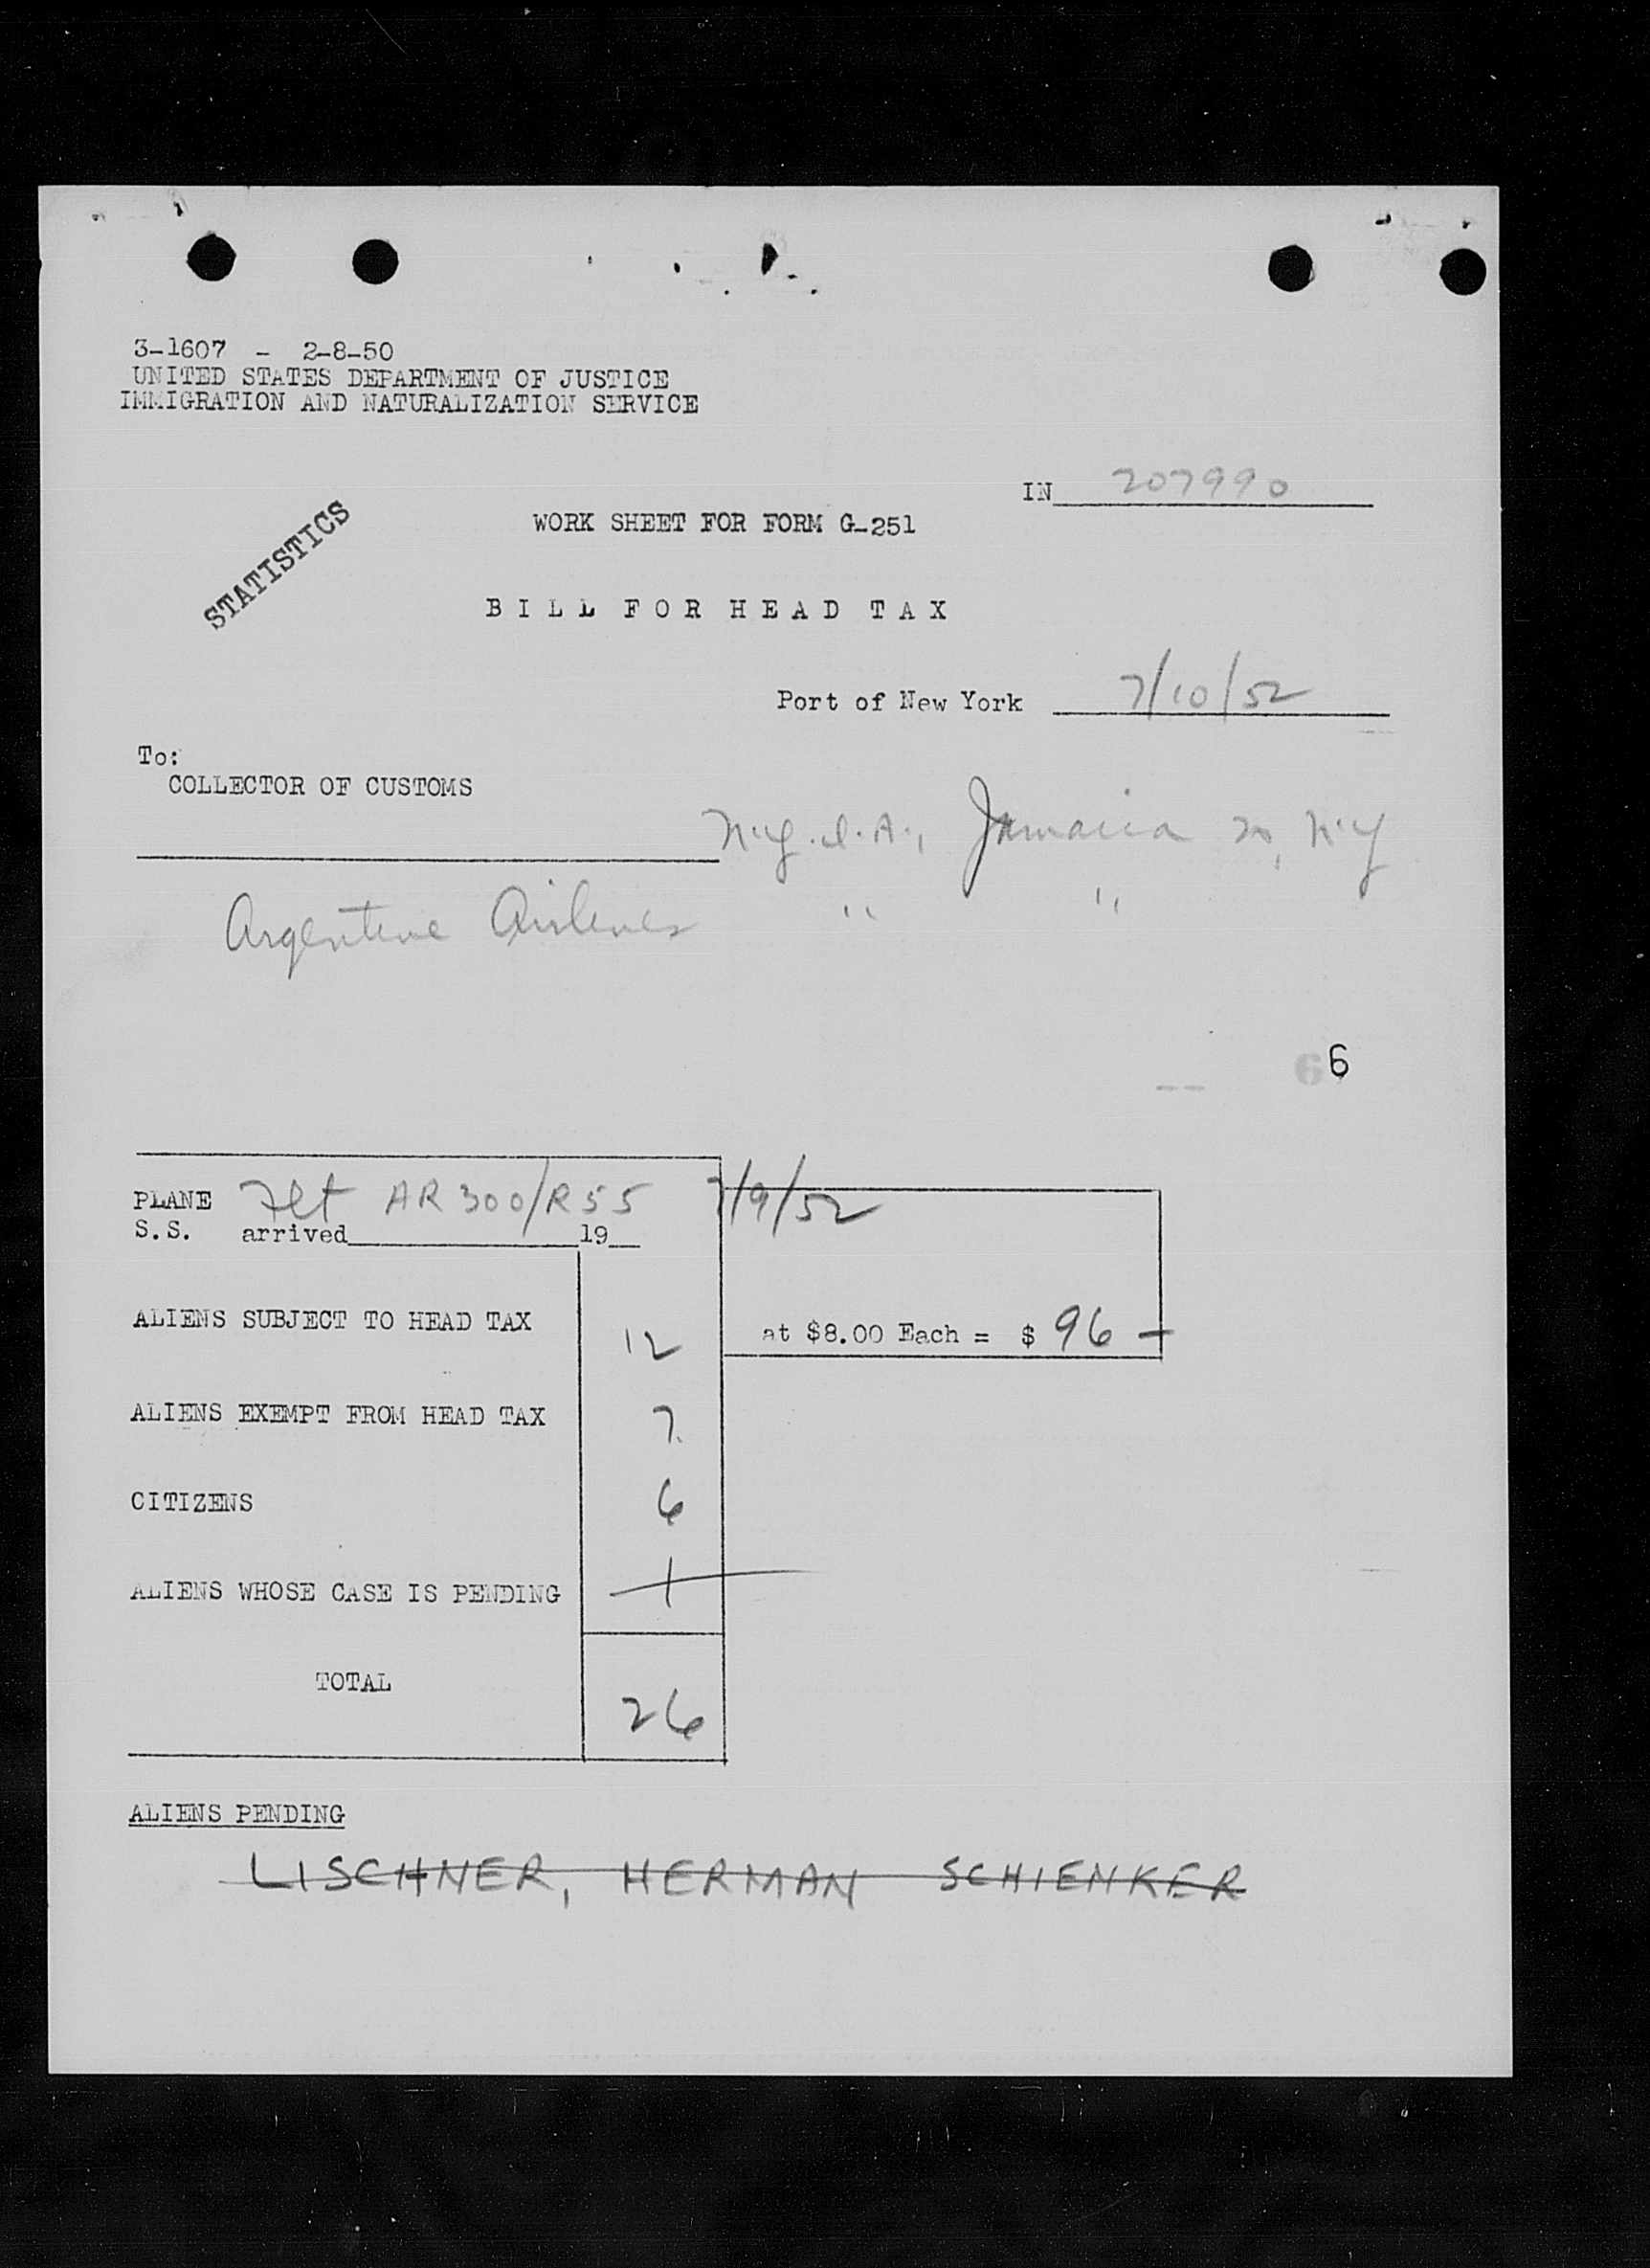 3-1607 - 2-8-50
UNITED STATES DEPARTMENT OF JUSTICE
IMMIGRATION AND NATURALIZATION SERVICE
IN 207990
WORK SHEET FOR FORM G-251
STATISTICS
BILL FOR HEAD TAX
Port of New York 7/10/52
To:
COLLECTOR OF CUSTOMS
N.Y.I.A., Jamaica 20, N.Y
Argentine Airlines " "
6 6
PLANE Flt AR 300/R55 7/9/52
S.S. arrived 19
ALIENS SUBJECT TO HEAD TAX 12 at $8.00 Each = $ 96 —
ALIENS EXEMPT FROM HEAD TAX 7
CITIZENS 6
ALIENS WHOSE CASE IS PENDING 1
TOTAL 26
ALIENS PENDING
LISCHNER, HERMAN SCHIENKER